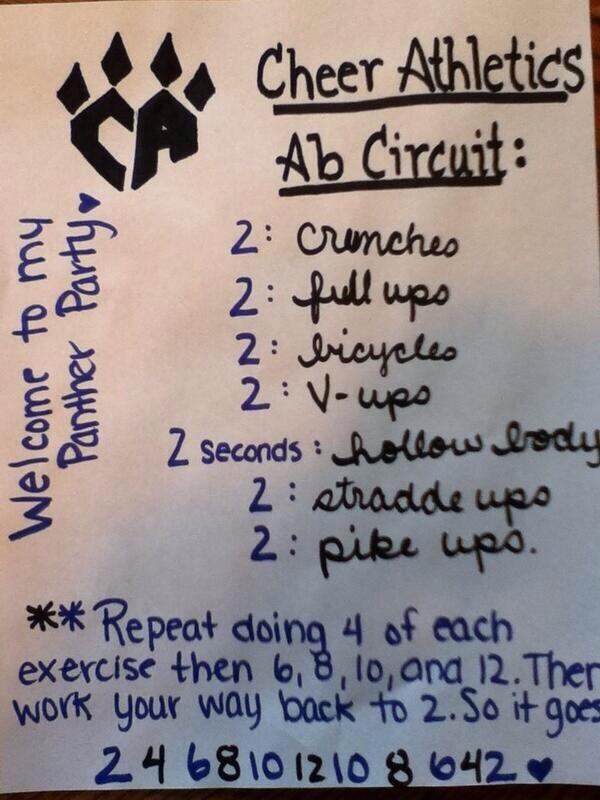 CA
Cheer Athletics
Ab Circuit:
Welcome to my
Panther Party♥
2: crunches
2: full ups
2: bicycles
2: V-ups
2 seconds: hollow body
2: stradde ups
2: pike ups.
** Repeat doing 4 of each
exercise then 6, 8, 10, and 12. Then
work your way back to 2. So it goes
2 4 6 8 10 12 10 8 6 4 2 ♥